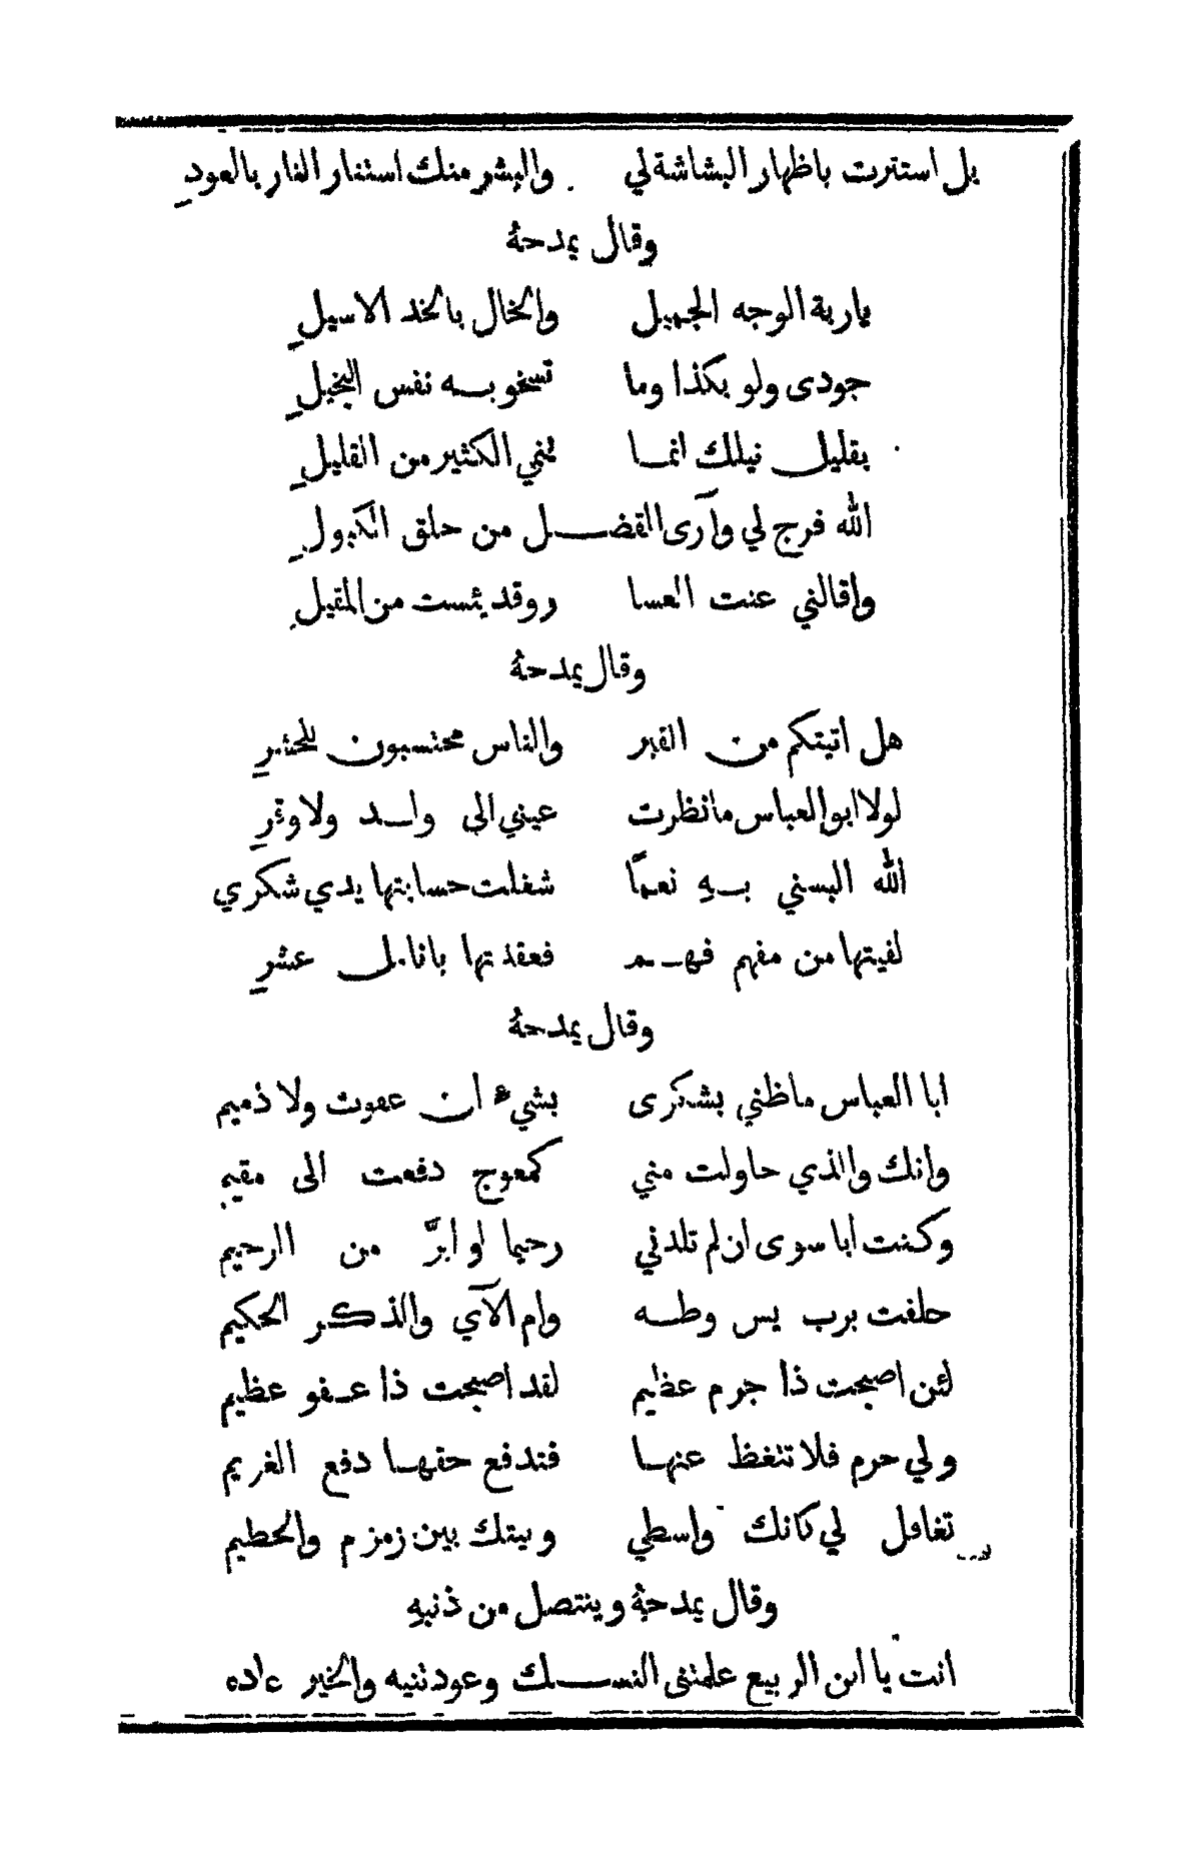 بل استترت باظهار البشاشة لي والبشر منك استتار النار بالعودِ
وقال يمدحهُ
ياربة الوجه الجميل والخال بالخد الاسيلِ
جودى ولو بكذا وما تسخو بــه نفس البخيلِ
بقليل نيلك انمــا تمني الكثير من القليلِ
الله فرج لي وآرى القضــل من حلق الكبولِ
واقالني عنت العسا روقد يئست من المقيلِ
وقال يمدحهُ
هل اتيتكم من القبر والناس محتسبون للحشرِ
لولا ابوالعباس مانظرت عيني الى ولــد ولاوترِ
الله البسني بــهِ نعمًا شغلت حسابتها يدي شكري
لقيتها من مفهم فهــم فعقدتها بانامل عشرِ
وقال يمدحهُ
ابا العباس ماظني بشكرى بشيء ان عفوت ولا ذميم
وانك والذي حاولت مني كمعوج دفعت الى مقيمِ
وكنت ابا سوى ان لم تلدني رحيما او ابرّ من الرحيم
حلفت برب يس وطــه وام الآي والذكــر الحكيم
لئن اصبحت ذا جرم عظيم لقد اصبحت ذا عــفو عظيم
ولي حرم فلا تتغظ عنهــا فتدفع حقهــا دفع الغريم
تغافل لي كانك واسطي وبيتك بين زمزم والحطيم
وقال يمدحهُ وينتصل من ذنبهِ
انت يا ابن الربيع علمتنى النســك وعودتنيه والخير عاده